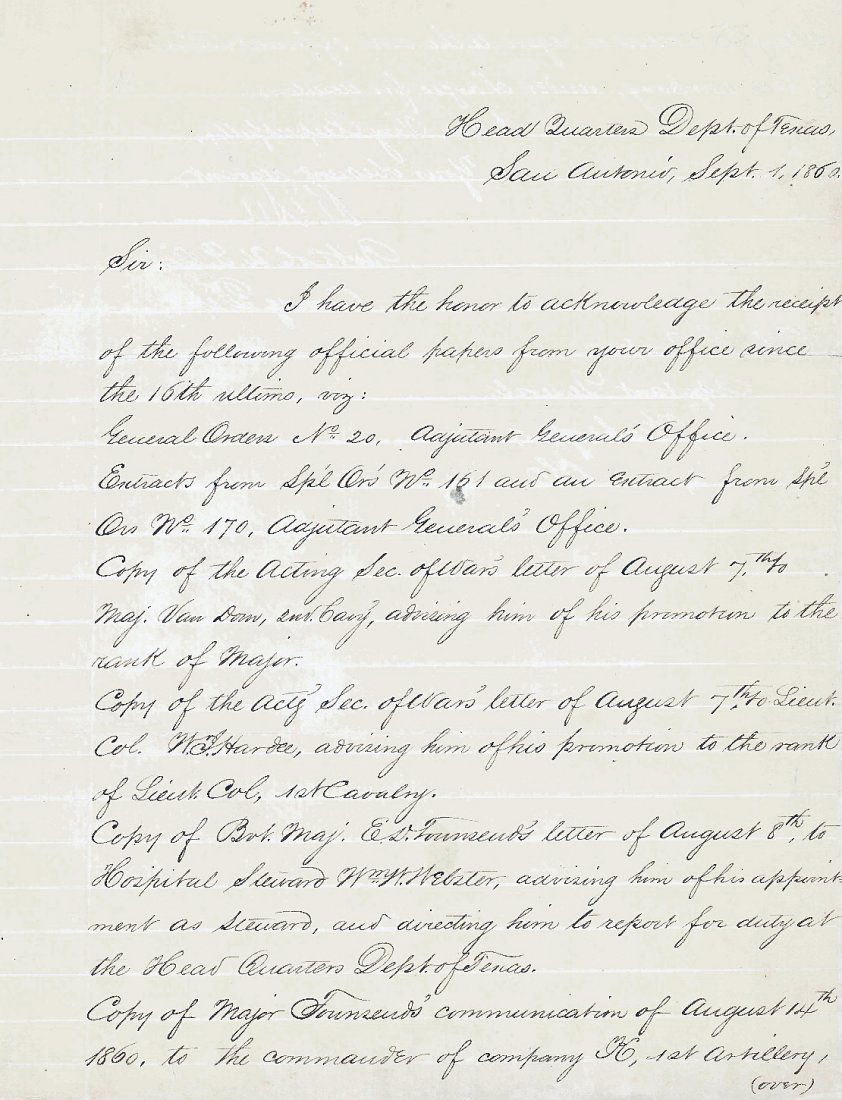 Head Quarters Dept. of Texas,
San Antonio, Sept. 1, 1860.
Sir:
I have the honor to acknowledge the receipt
of the following official papers from your office since
the 16th ultimo, viz:
General Orders No. 20, Adjutant General's Office.
Extracts from Sp'l Or's No. 161 and an extract from Sp'l
Ors No. 170, Adjutant General's Office.
Copy of the Acting Sec. of War's letter of August 7th, to
Maj. Van Dorn, 2nd. Cav'y, advising him of his promotion to the
rank of Major.
Copy of the Act'g Sec. of War's letter of August 7th, to Lieut.
Col. W.J. Hardee, advising him of his promotion to the rank
of Lieut. Col, 1st Cavalry.
Copy of Bvt. Maj. E.D. Townsend's letter of August 8th, to
Hospital Steward Wm. W. Webster, advising him of his appoint-
ment as steward, and directing him to report for duty at
the Head Quarters Dept. of Texas.
Copy of Major Townsend's communication of August 14th
1860, to the commander of company K, 1st Artillery,
(over)